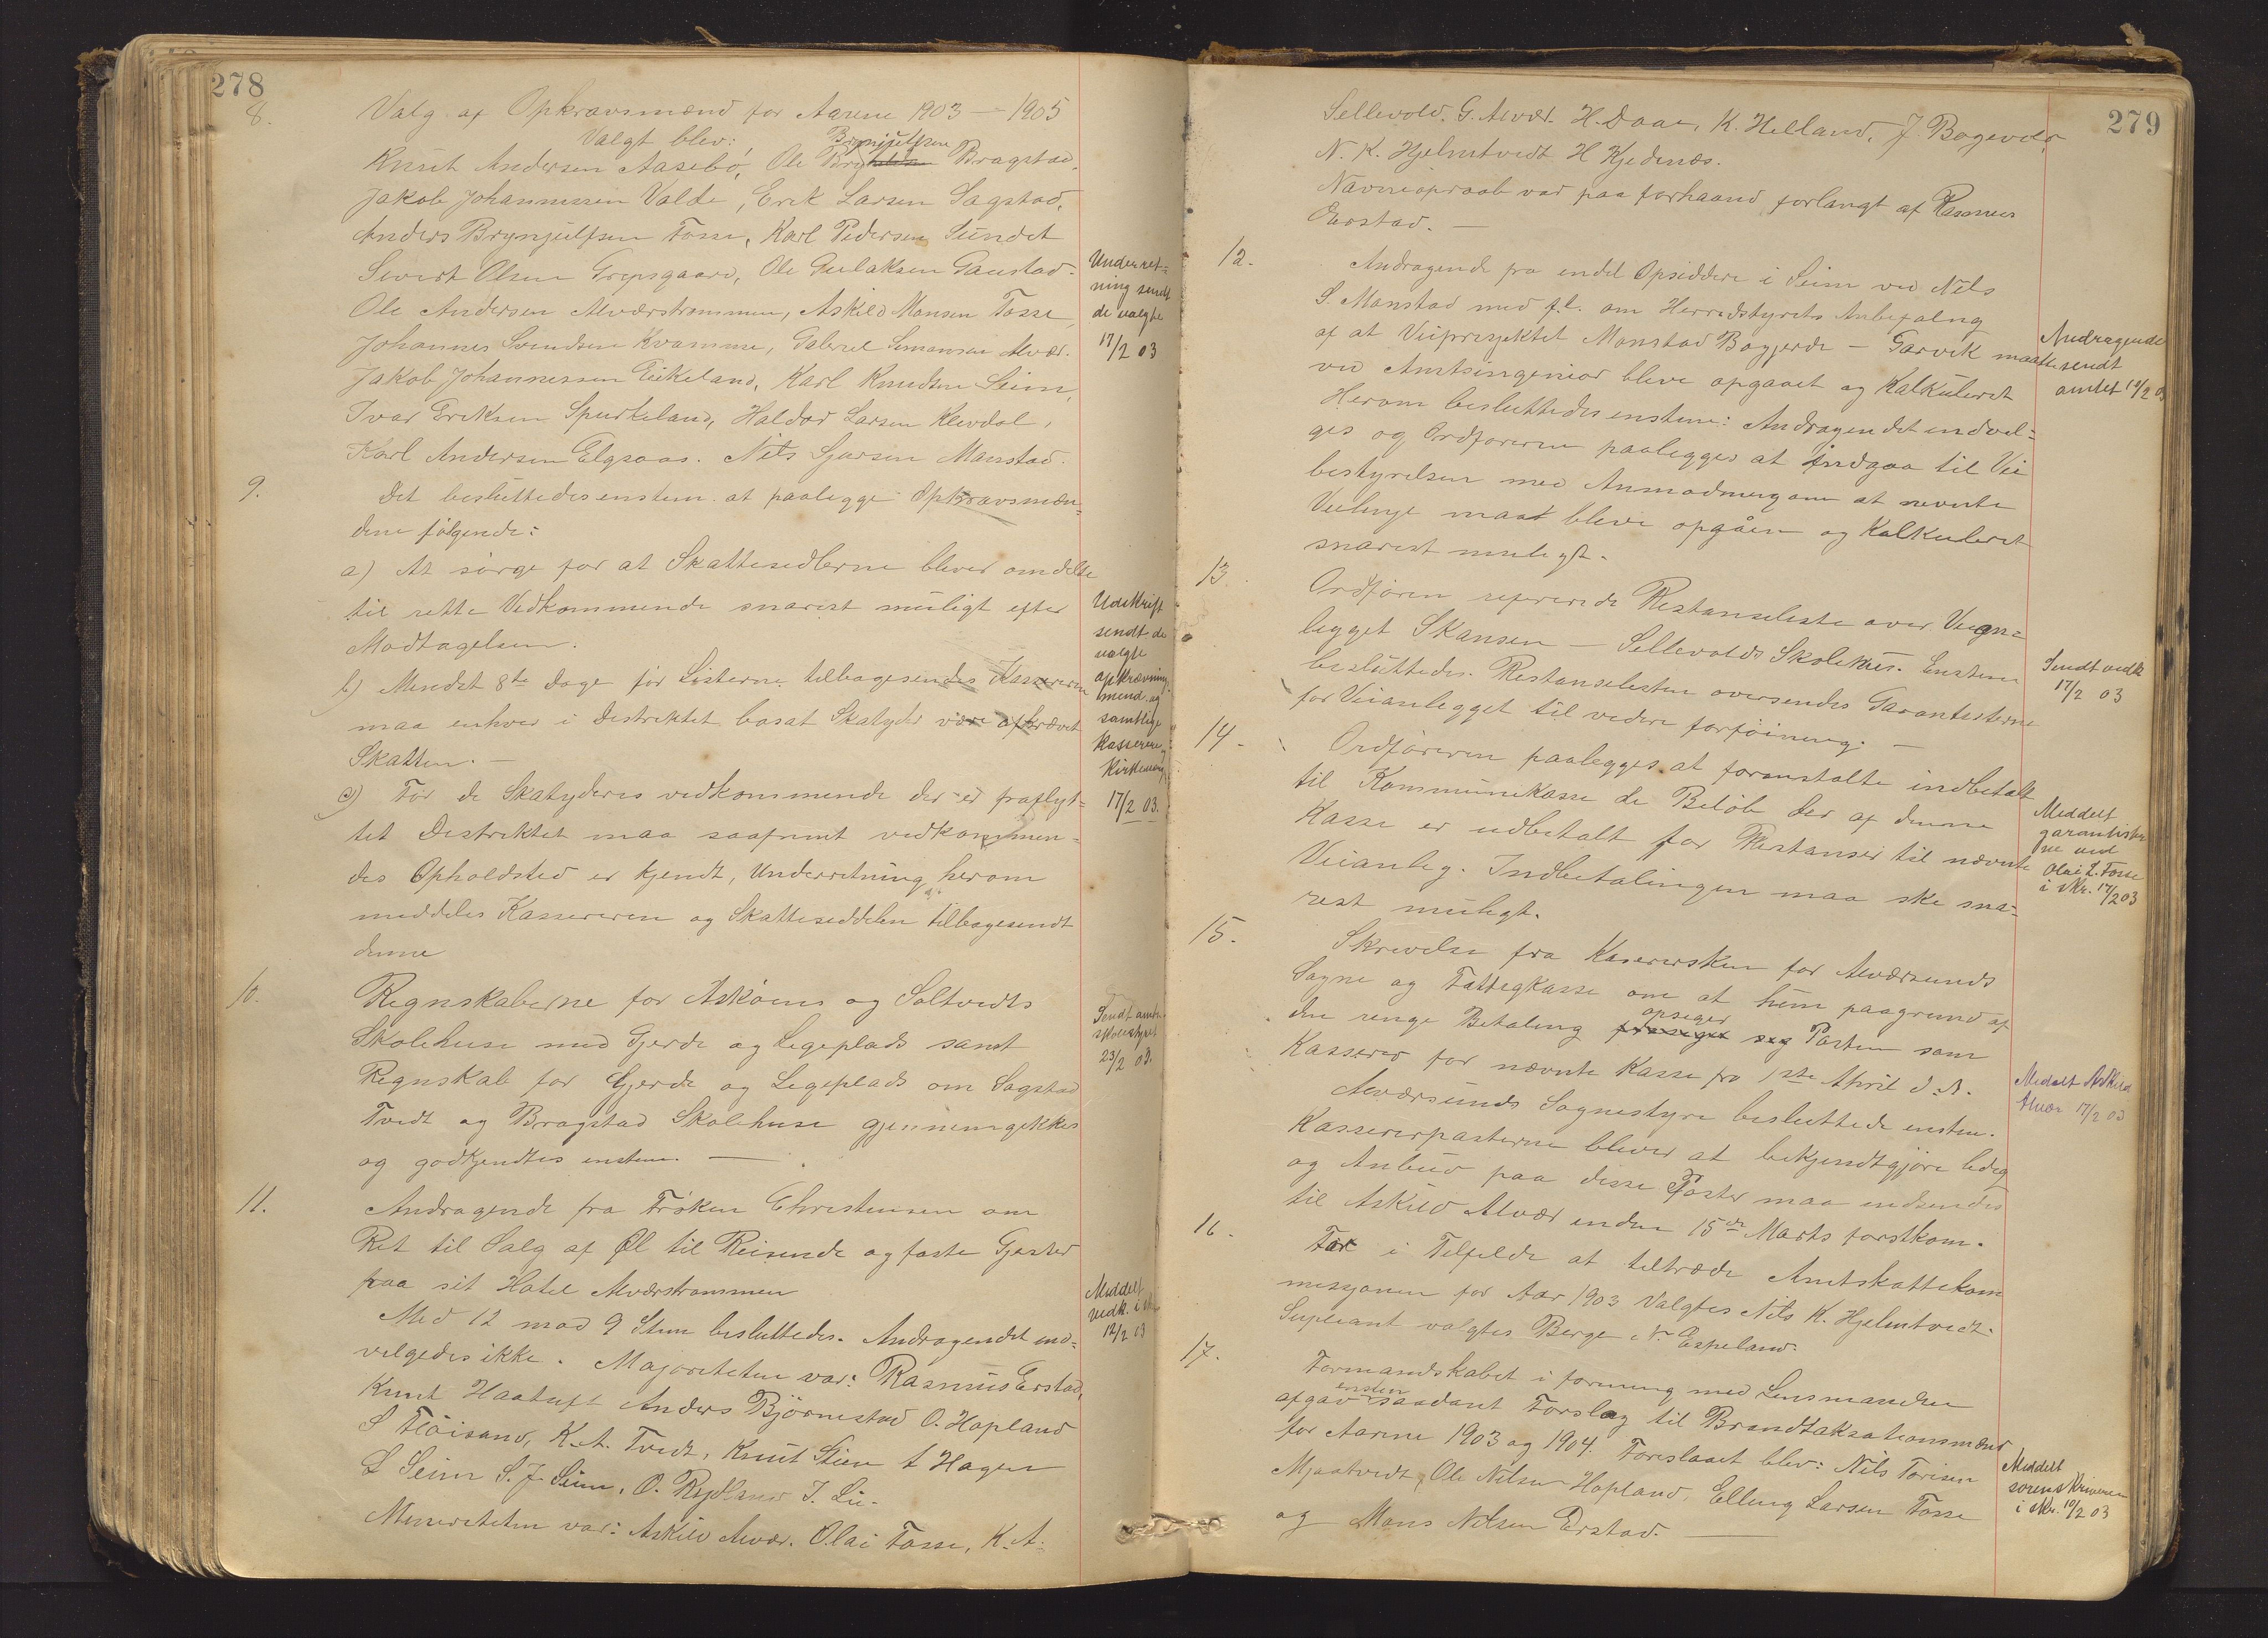 278
8. Valg af Opkravsmænd for Aarene 1903 – 1905
Valgt blev: Brynjulfsen
Knut Andersen Aasebö, Ole Bragstad,
Jakob Johannessen Valde, Erik Larsen Sagstad,
Anders Brynjulfsen Fosse, Karl Pedersen Sundet
Sivert Olsen Grepsgaard, Ole Gulaksen Gaustad.
Ole Andersen Alværstrømmen, Askild Monsen Fosse,
Johannes Svendsen Kvamme, Gabriel Simonsen Alvær.
Jakob Johannessen Eikeland, Karl Knudsen Seim,
Ivar Eriksen Spurkeland, Haldor Larsen Klevdal,
Karl Andersen Elgsaas. Nils Sjursen Monstad.
Underret-
ning sendt
de valgte
17/2 03
9. Det besluttedes enstem. at paalegge Opkravsmæn-
dene følgende:
a) At sörge for at Skattesedlerne bliver omdelte
til rette Vedkommende snarest muligt efter
Modtagelsen.
b) Mindst 8te Dage för Listerne tilbagesendes Kassereren
maa enhver i Distriktet bosat Skatyder være afkrævet
Skatten. –
c) For de Skatyderes vedkommende der er fraflyt-
tet Distriktet maa saafremt vedkommen-
des Opholdsted er kjendt, Underretning herom
meddeles Kassereren og Skatteseddelen tilbagesendt
denne
Udskrift
sendt de
valgte
opkrævnings-
mend og
samtlige
Kasserere og
Kirkeverg
17/2 03.
10. Regnskaberne for Asköens og Soltvedts
Skolehuse med Gjerde og Legeplads samt
Regnskab for Gjerde og Legeplads om Sagstad
Tvedt og Bragstad Skolehuse gjennemgikkes
og godkjendtes enstem. –
Sendt amts
skolestyret
23/2 03.
11. Andragende fra Fröken Christensen om
Ret til Salg af Øl til Reisende og faste Gjester
paa sit Hotel Alværstrømmen
Med 12 mod 9 Stem besluttedes. Andragendet ind-
velgedes ikke. Majoriteten var: Rasmus Erstad,
Knut Haatuft Anders Björnestad O. Hopland
S Flöisand, K. A. Tvedt, Knut Stien A Hagen
L Seim S. J. Seim, O. Rydland I. Lie.
Minoriteten var: Askild Alvær. Olai Fosse, K. A.
Meddelt
vedk. i skr
12/2 03
279
Sellevold. G. Alvær. H. Daae, K. Helland, J. Bogevær,
N. K. Hjelmtvedt H Kjedenæs.
Navneopraab var paa forhaand forlangt af Rasmus
Erstad. –
12. Andragende fra endel Opsiddere i Seim ved Nils
S. Monstad med fl. om Herredstyrets Anbefalng
af at Veiprosjektet Monstad Bogjerde – Garvik maatte
ved Amtsingeniør bleve opgaaet og Kalkuleret
Herom besluttedes enstem: Andragendet indvel-
ges og Ordføreren paalegges at indgaa til Vei
bestyrelsen med Anmodning om at nevnte
Veilinje maat bleve opgåen og Kalkuleret
snarest muligt.
Andragende
sendt
amtet 10/2 03
13. Ordfören refererede Restanseliste over Veian-
legget Skansen – Sellevolds Skolehus. Enstem
besluttedes. Restanselisten oversendes Garantisterne
for Veianlegget til videre forföining. –
Sendt vedk
17/2 03
14. Ordføreren paalegges at foranstalte indbetalt
til Kommunekasse de Belöb der af denne
Kasse er udbetalt for Restanser til nævnte
Veianleg. Indbetalingen maa ske sna-
rest muligt.
Meddelt
garantister
ne ved
Olai L. Fosse
i skr. 17/2 03
15. Skrivelse fra Kasserersken for Alværsunds
Sogne og Fattigkasse om at hun paagrund af
den ringe Betaling opseger Posten som
Kasserer for nævnte Kasse fra 1ste April d. A.
Alværsunds Sognestyre besluttede enstem.
Kassererposterne bliver at bekjendtgjøre ledig
og Anbud paa disse Poster maa indsendes
til Askild Alvær inden 15de Marts førstkom.
Medelt Askild
Alvær 17/2 03
16. For i Tilfelde at tiltræde Amtskattekom
missjonen for Aar 1903 Valgtes Nils K. Hjelmtvedt.
Supleant valgtes Berge N. Espeland.
17. Formandskabet i forening med Lensmanden
afgav enstem saadant Forslag til Brandtaksationsmænd
for Aarene 1903 og 1904. Foreslaaet blev: Nils Torisen
Mjaatvedt, Ole Nilsen Hopland, Elling Larsen Fosse
og Mons Nilsen Erstad. –
Meddelt
sorenskriveren
i skr. 10/2 03